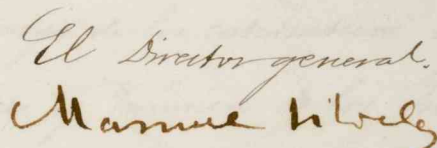 El Director general.
Manuel Silvela